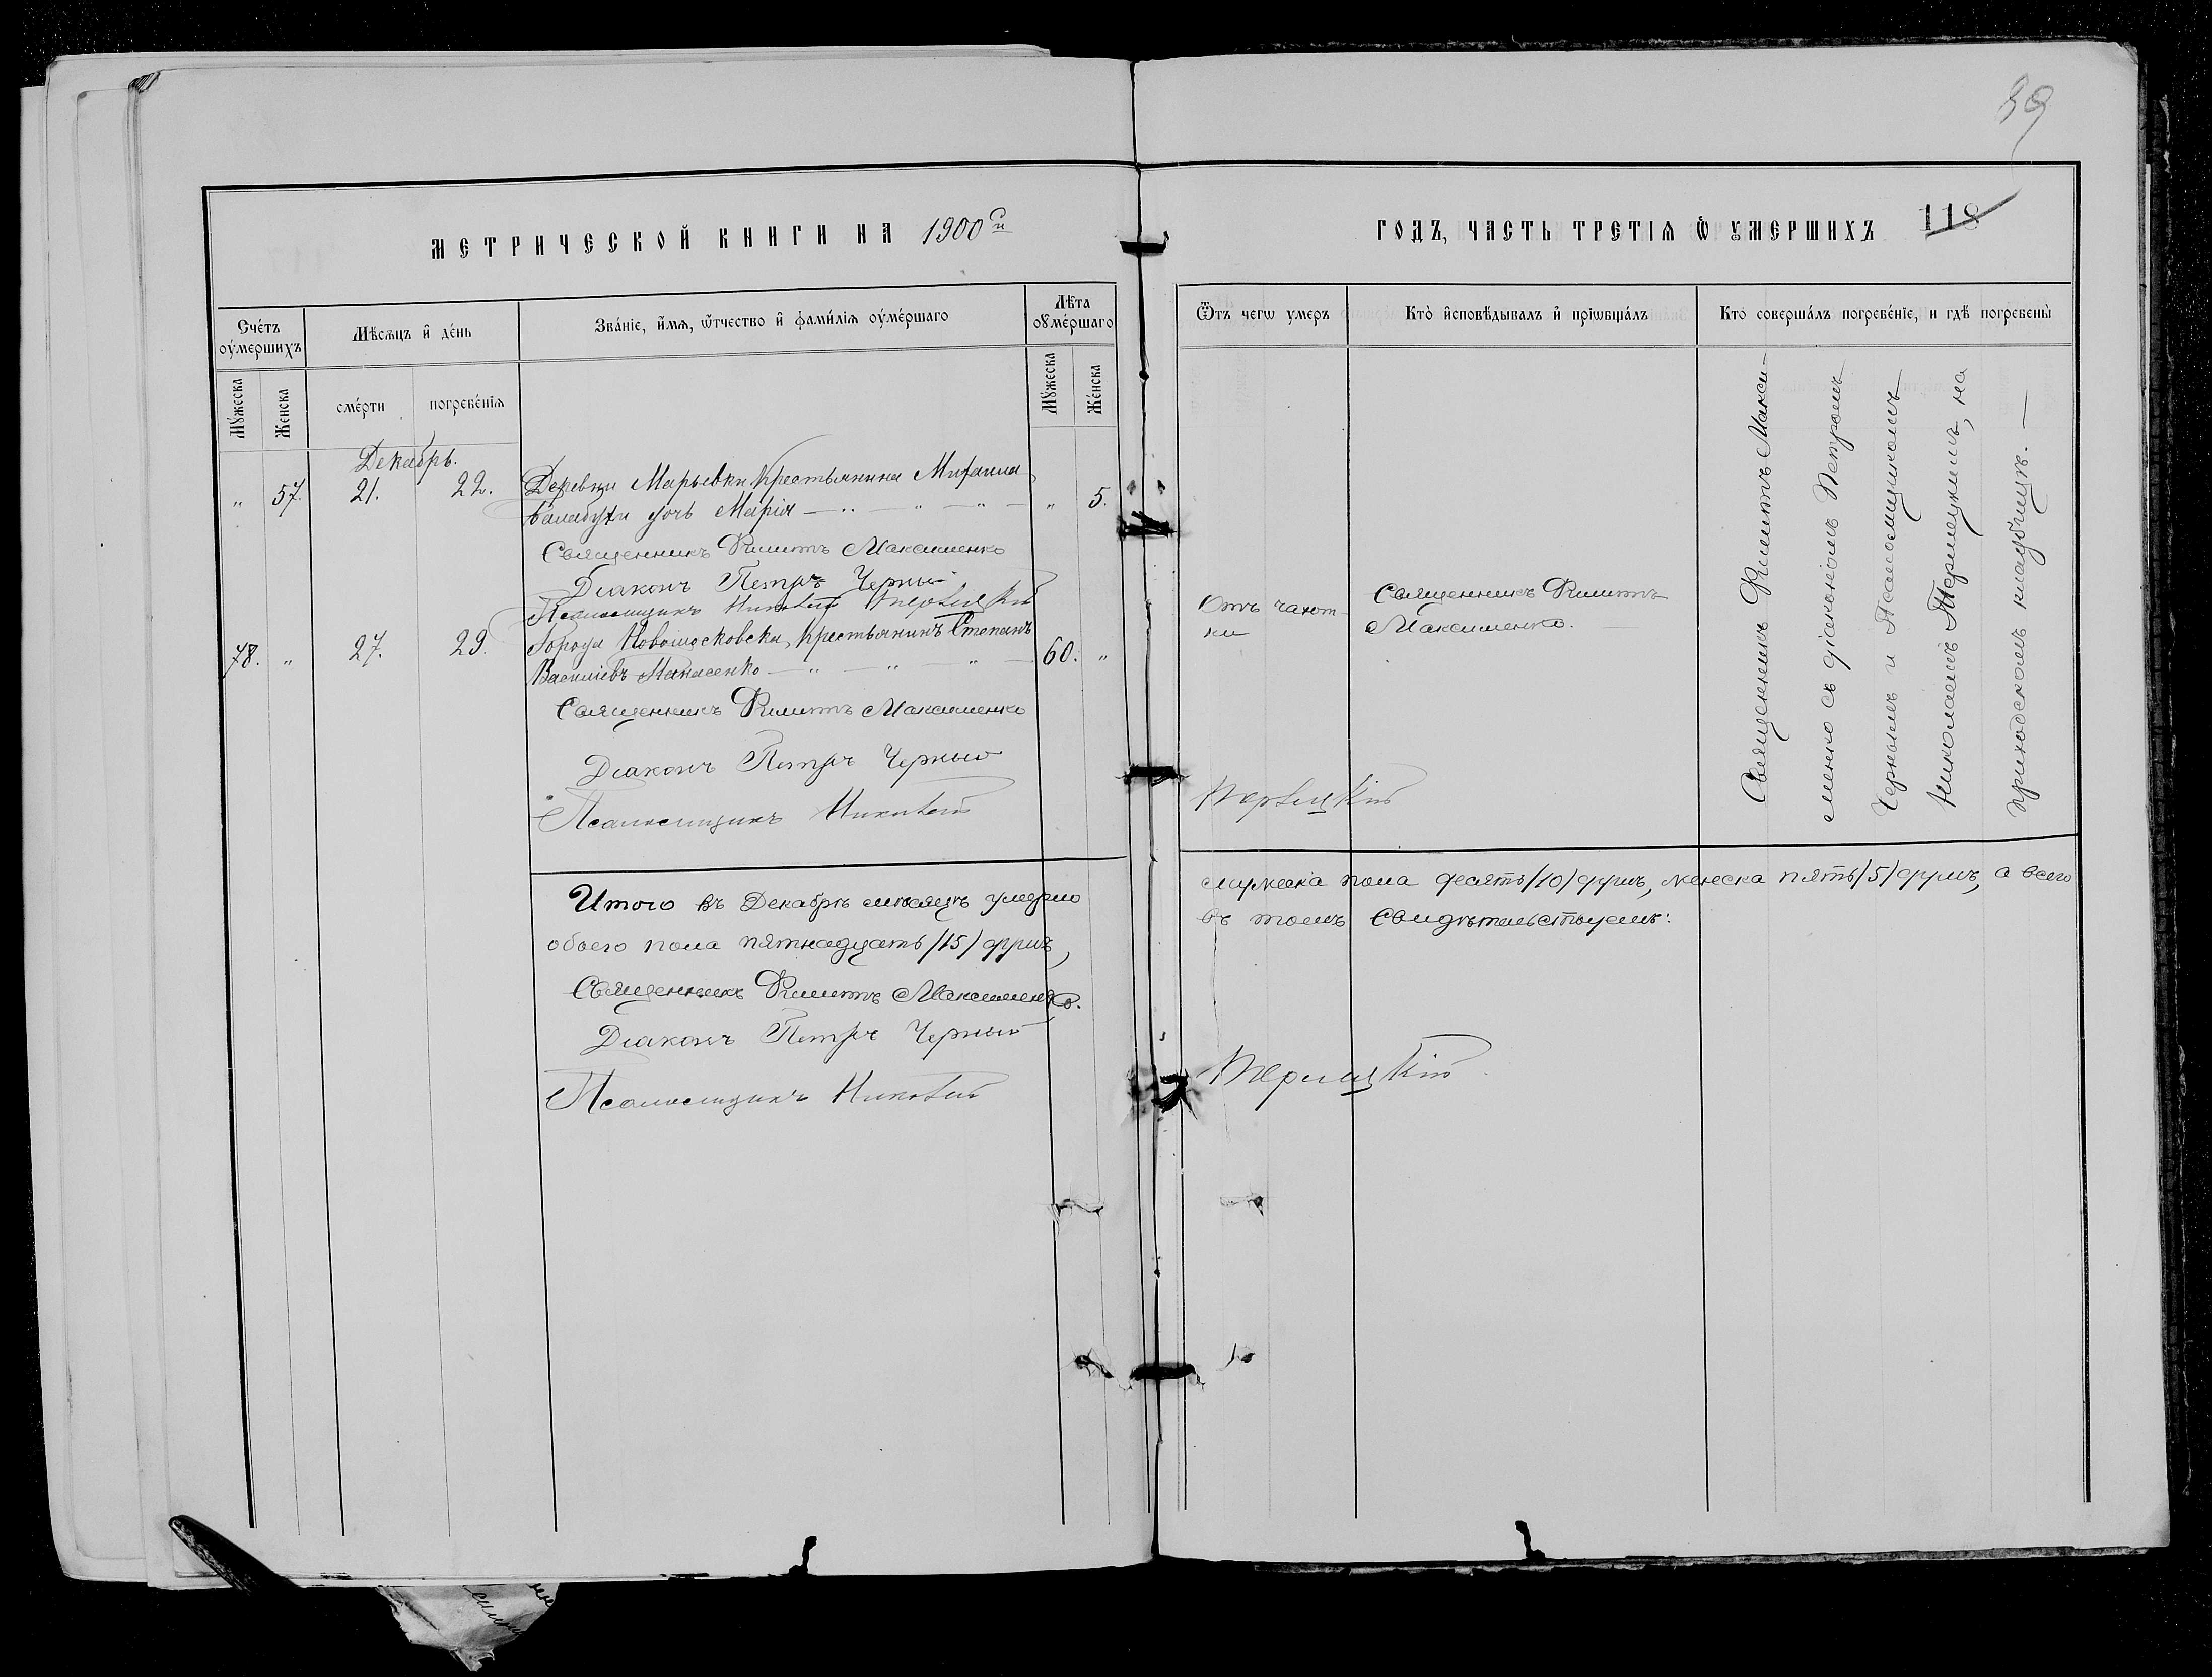 39
МЕТРИЧЕСКОЙ КНИГИ НА 1900й
ГОДЪ, ЧАСТЬ ТРЕТІЯ Ѡ УМЕРШИХЪ 118
Счетъ оумершихъ
Мѣсяцъ и день
Званіе, имя, ѿтчество и фамилія оумершаго
Лѣта оумершаго
Ѿтъ чегѡ умеръ
Кто исповѣдывалъ и пріѡбщалъ
Кто совершалъ погребеніе, и гдѣ погребены
Мужеска
Женска
смерти
погребенія
Мужеска
Женска
Декабрь.
„ 57. 21. 22. Деревни Марьевки, крестьянина Михаила
дочь Марія — „ — „ — „ — „ 5.
Священникъ Филиппъ Максименко
Діаконъ Петръ Черный
Псаломщикъ Николай Терлецкій
78. „ 27. 29. Города Новомосковска, крестьянинъ Степанъ
Василіевъ Манасенко — „ — „ — „ — 60. „
Отъ чахот-
ки
Священникъ Филиппъ
Максименко.
Священникъ Филиппъ Макси-
менко съ діакономъ Петромъ
Чернымъ и Псаломщикомъ
Николаемъ Терлецкимъ, на
приходскомъ кладбищѣ. —
Священникъ Филиппъ Максименко
Діаконъ Петръ Черный
Псаломщикъ Николай Терлецкій
Итого въ Декабрѣ мѣсяцѣ умерло мужеска пола десять /10/ душъ, женска пять /5/ душъ, а всего
обоего пола пятнадцать /15/ душъ, въ томъ свидѣтельствуемъ:
Священникъ Филиппъ Максименко.
Діаконъ Петръ Черный
Псаломщикъ Николай Терлецкій